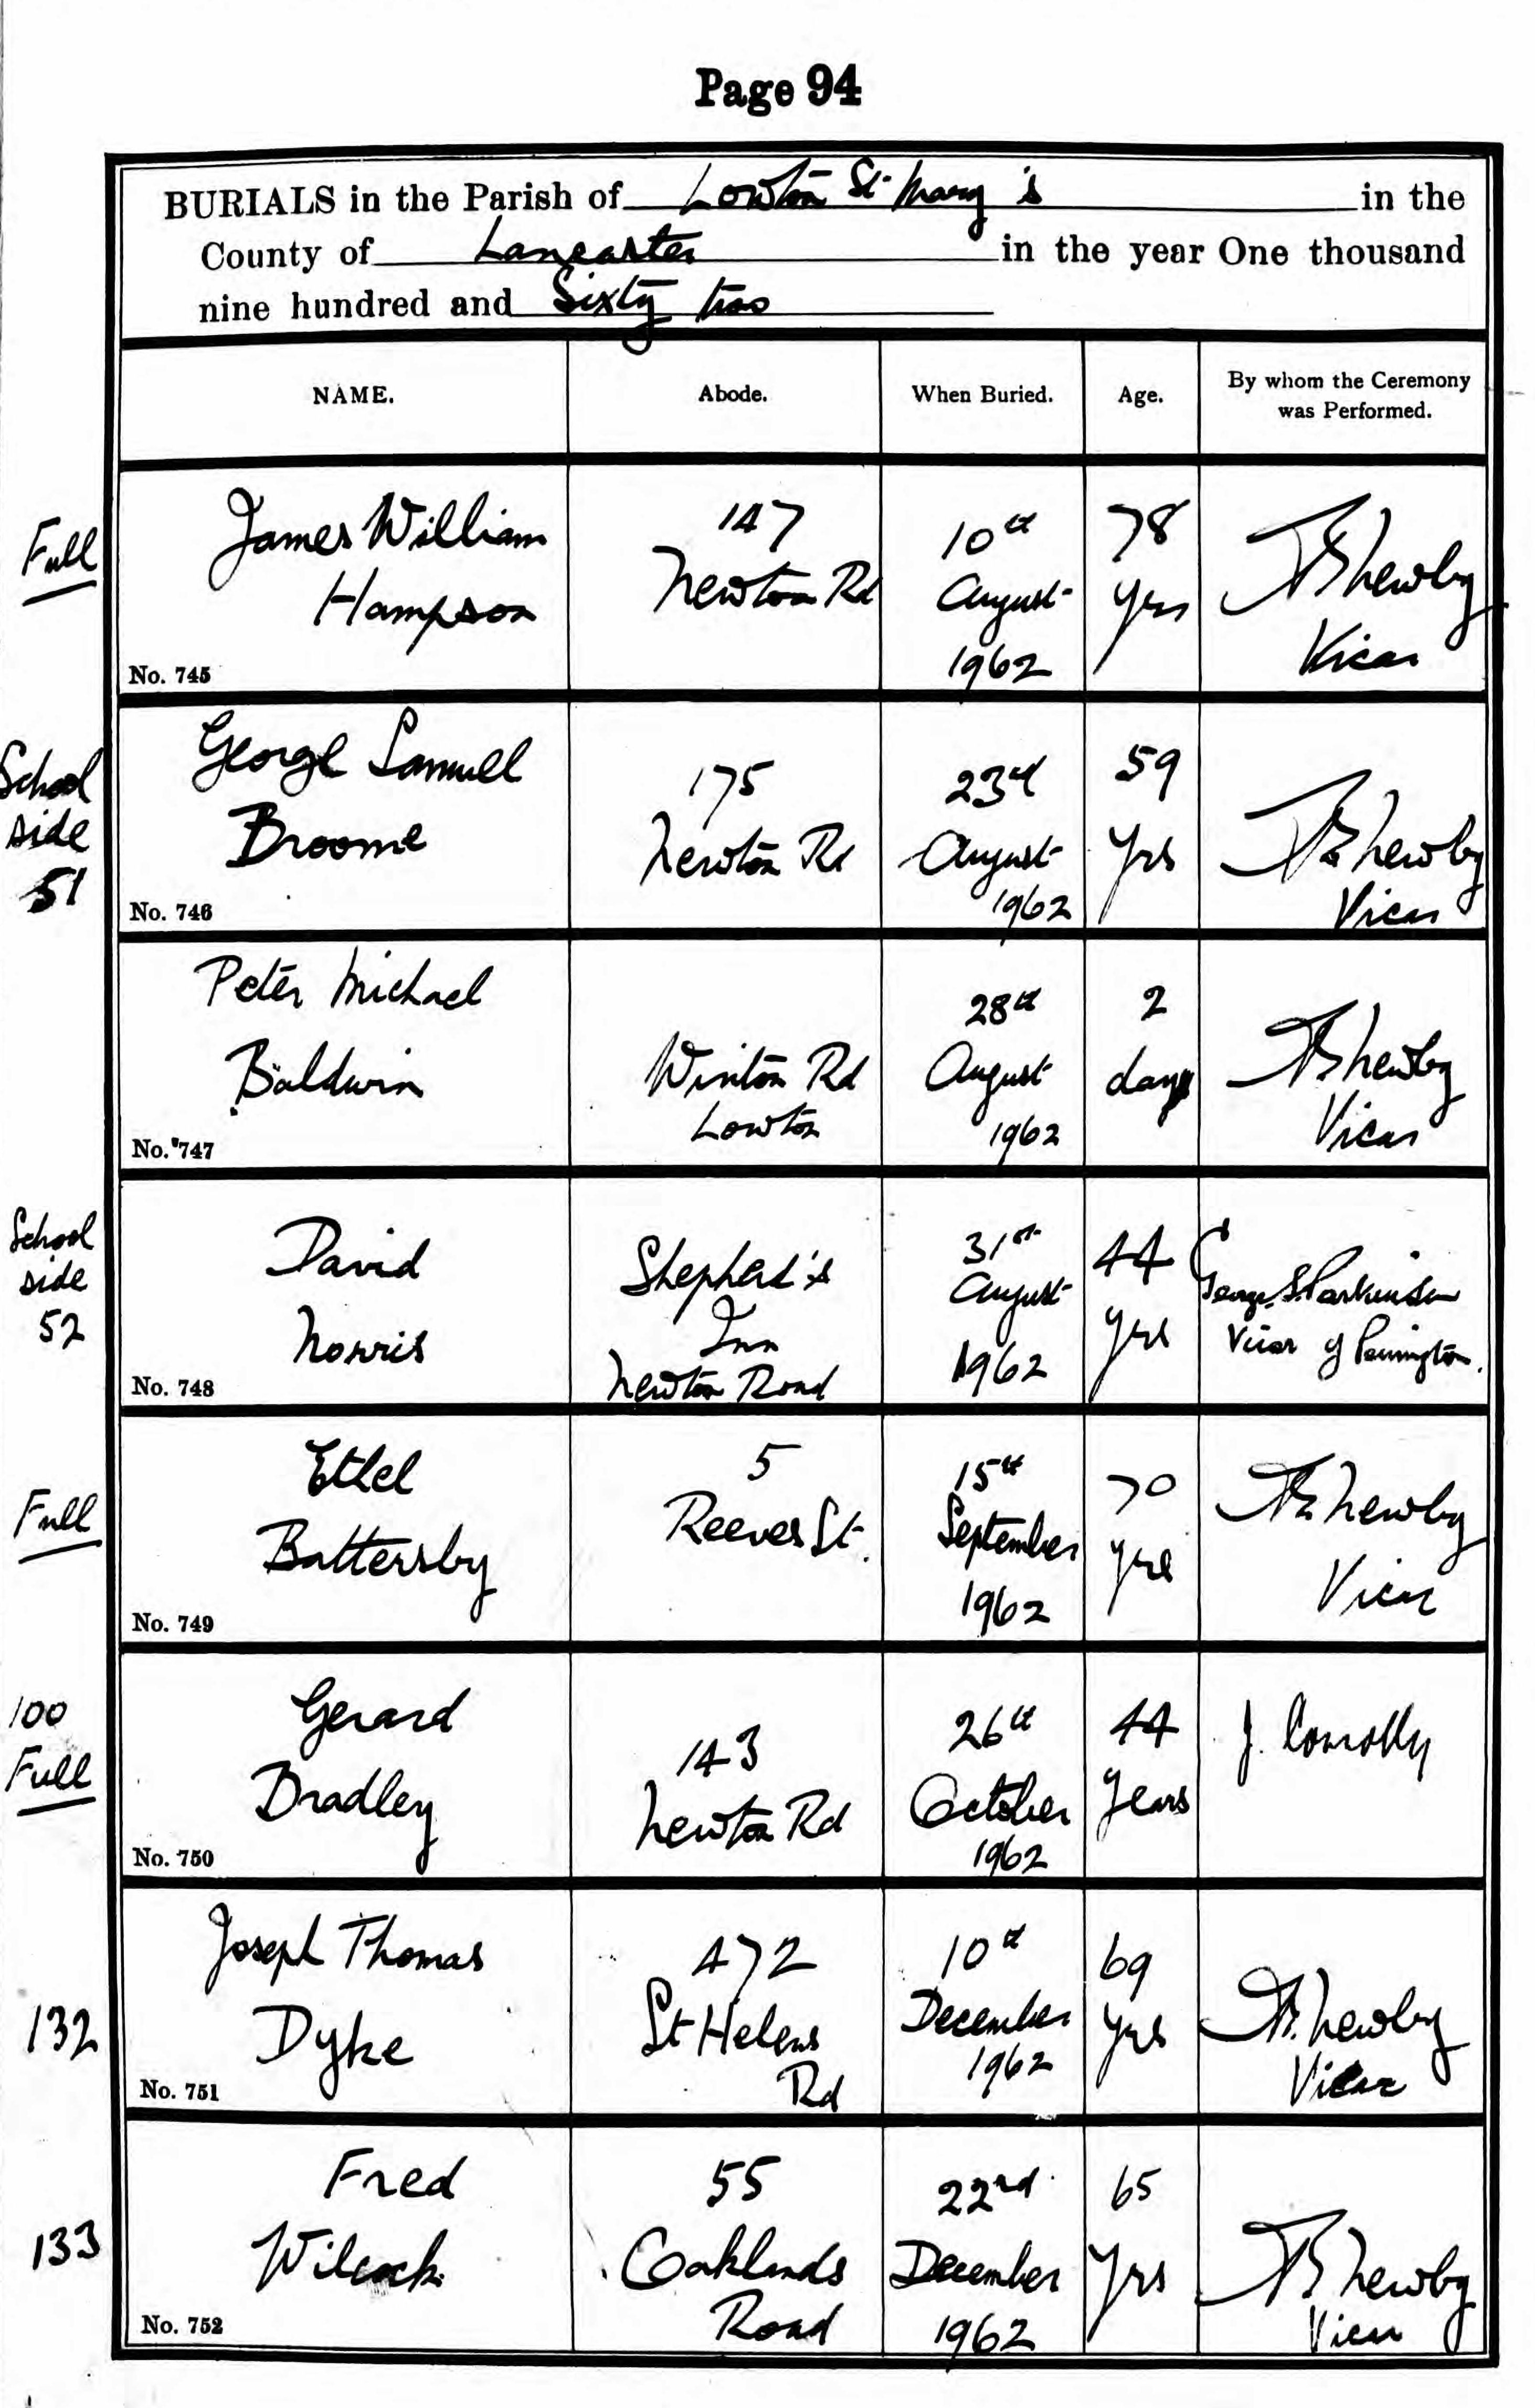 Page 94
BURIALS in the Parish of Lowton St. Mary's in the
County of Lancaster in the year One thousand
nine hundred and Sixty two
NAME. Abode. When Buried. Age. By whom the Ceremony was Performed.
Full
James William
Hampson
No. 745
147
Newton Rd
10th
August
1962
78
yrs
Newby
Vicar
School
side
51
George Samuel
Broome
No. 746
175
Newton Rd
23rd
August
1962
59
yrs
Newby
Vicar
Peter Michael
Baldwin
No. 747
Winton Rd
Lowton
28th
August
1962
2
days
Newby
Vicar
School
side
52
David
Norris
No. 748
Shepherd's
Inn
Newton Road
31st
August
1962
44
yrs
George S. Parkinson
Vicar of Pennington.
Full
Ethel
Battersby
No. 749
5
Reeves St.
15th
September
1962
70
yrs
Newby
Vicar
100
Full
Gerard
Bradley
No. 750
143
Newton Rd
26th
October
1962
44
Years
J. Connolly
132
Joseph Thomas
Dyke
No. 751
472
St Helens
Rd
10th
December
1962
69
yrs
Newby
Vicar
133
Fred
Wilcock
No. 752
55
Oaklands
Road
22nd
December
1962
65
yrs
Newby
Vicar